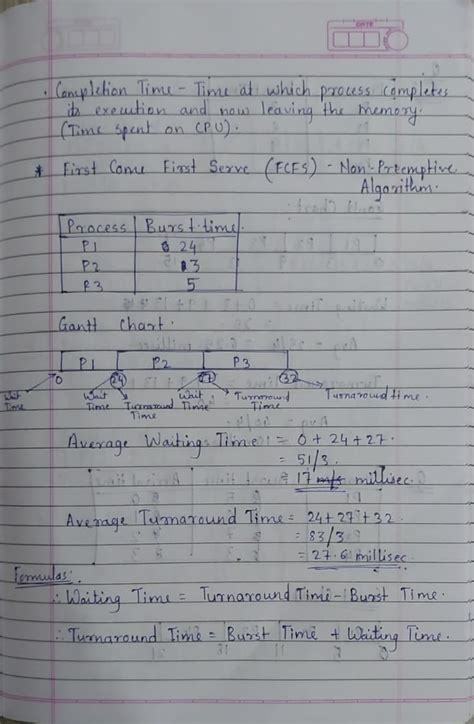 DATE
• Completion Time - Time at which process completes
its execution and now leaving the memory.
(Time spent on CPU).
* First Come First Serve (FCFS) - Non-Preemptive
Algorithm.
Process Burst-time.
P1 24
P2 3
P3 5
Gantt Chart.
P1 P2 P3
0 24 27 32
Wait Time Wait Time Turnaround Time Wait Time Turnaround Time Turnaround time.
Average Waiting Time = 0 + 24 + 27.
= 51/3.
= 17 m/s millisec.
Average Turnaround Time = 24 + 27 + 32.
= 83/3
= 27.6 millisec.
Formulas:
∴ Waiting Time = Turnaround Time - Burst Time.
∴ Turnaround Time = Burst Time + Waiting Time.